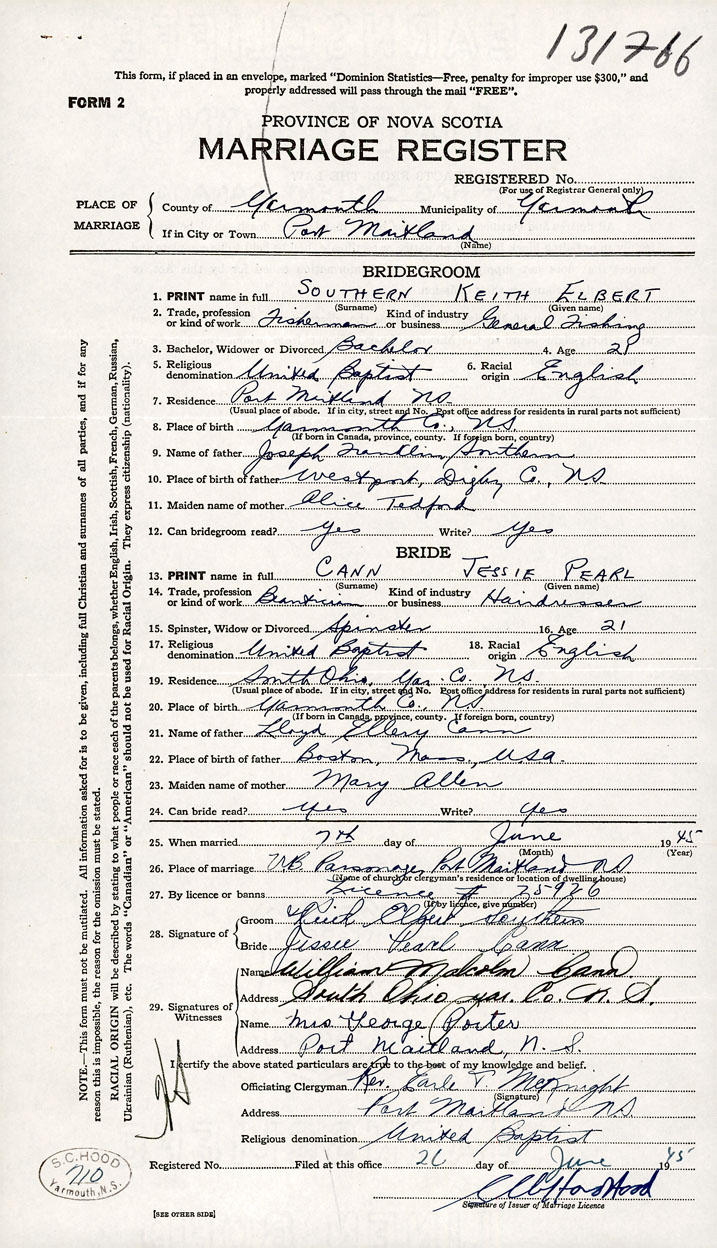 131766
This form, if placed in an envelope, marked "Dominion Statistics—Free, penalty for improper use $300," and
properly addressed will pass through the mail "FREE".
FORM 2
PROVINCE OF NOVA SCOTIA
MARRIAGE REGISTER
REGISTERED No.
(For use of Registrar General only)
PLACE OF MARRIAGE
County of Yarmouth Municipality of Yarmouth
If in City or Town Port Maitland
(Name)
BRIDEGROOM
1. PRINT name in full SOUTHERN KEITH ELBERT
(Surname) (Given name)
2. Trade, profession or kind of work Fisherman Kind of industry or business General Fishing
3. Bachelor, Widower or Divorced Bachelor 4. Age 21
5. Religious denomination United Baptist 6. Racial origin English
7. Residence Port Maitland NS.
(Usual place of abode. If in city, street and No. Post office address for residents in rural parts not sufficient)
8. Place of birth Yarmouth Co., NS
(If born in Canada, province, county. If foreign born, country)
9. Name of father Joseph Franklin Southern
10. Place of birth of father Westport, Digby Co., NS.
11. Maiden name of mother Alice Tedford
12. Can bridegroom read? Yes Write? Yes
BRIDE
13. PRINT name in full CANN JESSIE PEARL
(Surname) (Given name)
14. Trade, profession or kind of work Kind of industry or business Hairdresser
15. Spinster, Widow or Divorced Spinster 16. Age 21
17. Religious denomination United Baptist 18. Racial origin English
19. Residence South Ohio, Yar. Co. NS.
(Usual place of abode. If in city, street and No. Post office address for residents in rural parts not sufficient)
20. Place of birth Yarmouth Co., NS.
(If born in Canada, province, county. If foreign born, country)
21. Name of father Lloyd Ellery Cann
22. Place of birth of father Boston, Mass, USA.
23. Maiden name of mother Mary Allen
24. Can bride read? Yes Write? Yes
25. When married 7th day of June 1945
(Month) (Year)
26. Place of marriage U.B. Parsonage, Port Maitland NS.
(Name of church, or clergyman's residence or location of dwelling house)
27. By licence or banns Licence # 75926
(If by licence, give number)
28. Signature of
Groom Keith Elbert Southern
Bride Jessie Pearl Cann
29. Signatures of Witnesses
Name William Malcolm Cann
Address South Ohio Yar. Co. N. S.
Name Mrs George Porter
Address Port Maitland, N. S.
I certify the above stated particulars are true to the best of my knowledge and belief.
Officiating Clergyman Rev. Earle T McKnight
(Signature)
Address Port Maitland NS.
Religious denomination United Baptist
Registered No. Filed at this office 26 day of June 1945
Signature of Issuer of Marriage Licence
[SEE OTHER SIDE]
S. C. HOOD
710
Yarmouth, N.S.
NOTE.—This form must not be mutilated. All information asked for is to be given, including full Christian and surnames of all parties, and if for any
reason this is impossible, the reason for the omission must be stated.
RACIAL ORIGIN will be described by stating to what people or race each of the parents belongs, whether English, Irish, Scottish, French, German, Russian,
Ukrainian (Ruthenian), etc. The words "Canadian" or "American" should not be used for Racial Origin. They express citizenship (nationality).